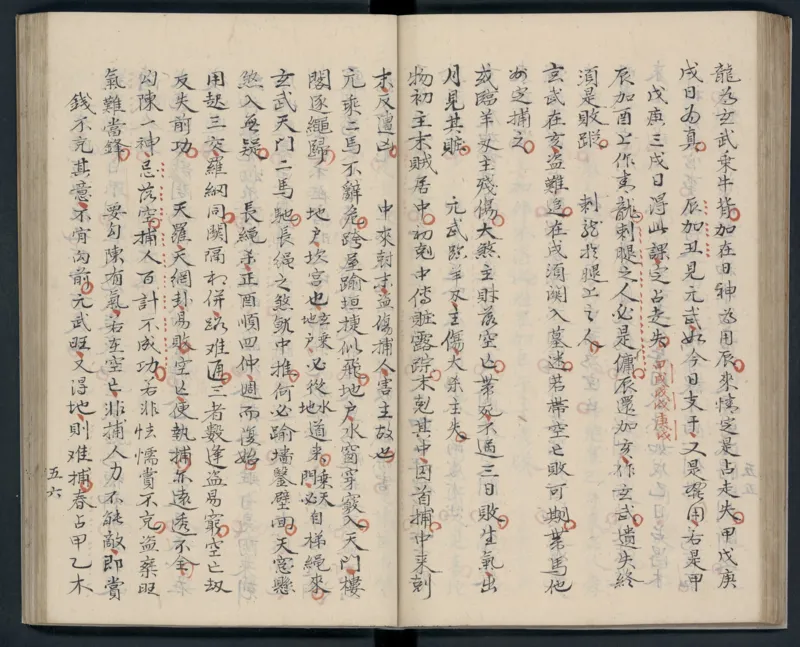 龍為玄武乘牛背加在日神為用辰來慎定是占走失甲戊庚
戌日為真 辰加丑見元武如今日支干又是發用若是甲
戊庚三戌日得此課定占走失甲戌戊戌庚戌
辰加酉上作青龍刺腿之人必是傭辰還加亥作玄武遺失終
須是敗蹤 刺龍於腿上之人
玄武在亥盜難追在戌須闌入墓迷若帶空亡敗可期帶馬他
州定捕之
或臨羊刃主殘傷大煞主財落空亡帶死不過三日敗生氣出
月見其賍 元武臨羊刃主傷大煞主失
物初主末賊居中初剋中傳賍露踪末剋其中因首捕中來剋
末反遭凶 中來尅末盜傷捕人害主故也
元乘二馬不辭危跨屋踰垣捷似飛地戶水窗穿竅入天門樓
閣逐繩歸 地戶坎宮也玄乘地戶必從水道來乘天門必自梯繩來
玄武天門二馬馳長繩之煞就中推何必踰墻鑿壁回天窓懸
煞入無疑 長繩煞正酉順四仲週而復始
用起三交羅網同關隔和併路难通三者數逢盜易窮空亡劫
反失前功 天羅天網卦易敗空亡使執捕亦遠透不全
勾陳一神忌落空捕人百計不成功若非怯懦賞不充盜乘旺
氣難當鋒 要勾陳有氣若在空亡非捕人力不能敵即賞
錢不充其意不肯向前元武旺又得地則难捕春占甲乙木
五六